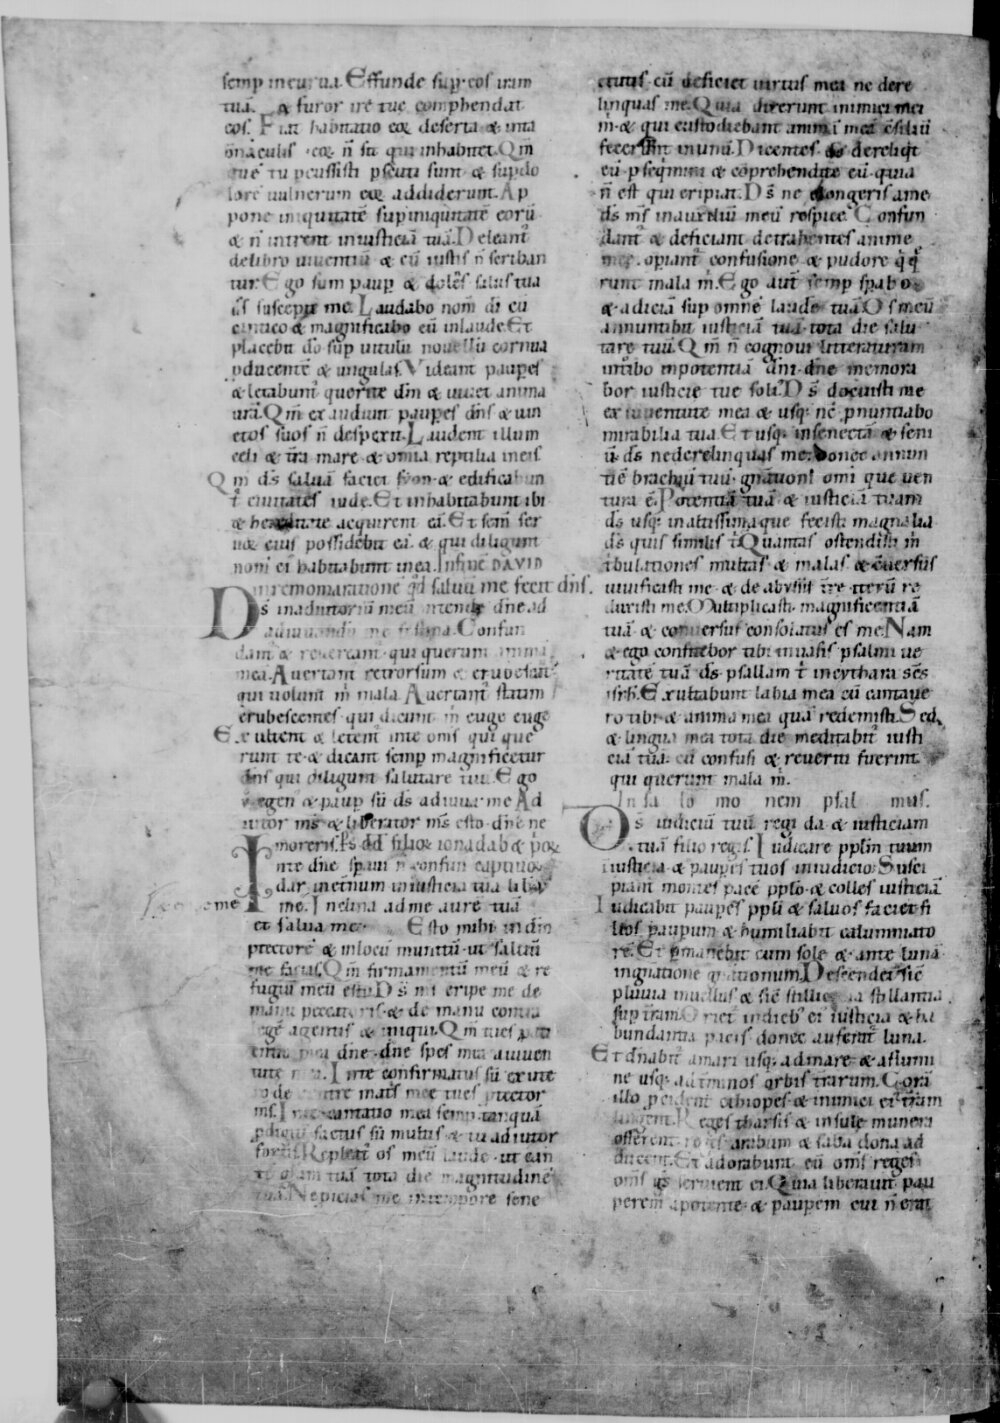 semp incurua. Effunde sup eos iram
tuā. & furor irę tuę comphendat
eos. Fiat habitatio eoꝝ deserta & inta
bnaculis eoꝝ n̄ sit qui inhabitet. Qm̄
quē tu pcussisti psecuti sunt & supdo
lorē uulnerum eoꝝ addiderunt. Ap
pone iniquitatē sup iniquitatē eorū
& n̄ intrent in iusticiā tuā. Deleant̄
de libro uiuentiū & cū iustis n̄ scriban
tur. Ego sum paup & dolēs salus tua
ds̄ suscepit me. Laudabo nom̄ di cū
cantico & magnificabo eū in laude. Et
placebit dō sup uitulū nouellū cornua
pducentē & ungulas. Videant paupes
& lętabunt̄ querite dm̄ & uiuet anima
urā. Qm̄ exaudiuit paupes dn̄s & uin
ctos suos n̄ despexit. Laudent illum
celi & tra mare & omīa reptilia in eis
Qm̄ ds̄ saluā faciet syon & edificabun
t̄ ciuitates iude. Et inhabitabunt ibi
& hereditate acquirent eā. Et sem̄ ser
uoꝝ eius possidebit eā & qui diligunt
nom̄ ei habitabunt in ea. In finē DAVID
in rememorationē qd̄ saluū me fecit dn̄s.
Ds̄ in adiutoriū meū intende dn̄e ad
adiuuandū me festina. Confun
dant̄ & reuereant̄ qui querunt animā
mea. Auertant̄ retrorsum & erubescāt
qui uolunt m̄ mala. Auertant̄ statim
erubescentes qui dicunt m̄ euge euge
Exultent & letent̄ in te om̄s qui que
runt te & dicant semp magnificetur
dn̄s qui diligunt salutare tuū. Ego
u egen & paup sū ds̄ adiuua me Ad
iutor ms̄ & liberator ms̄ esto dn̄e ne
moreris. Ps̄ dd̄ filioꝝ ionadab & pōꝝ
In te dn̄e spaui n̄ confundar captiuoꝝ
dar in et̄num in iusticia tua liba
me. Inclina ad me aurē tuā
et salua me. Esto mihi in dm̄
ptectorē & in locū munitū ut saluū
me facias. Qm̄ firmamentū meū & re
fugiū meū es tu. Ds̄ mi eripe me de
manu peccatoris & de manu contra
legē agentis & iniqui. Qm̄ tu es patī
entia mea dn̄e dn̄e spes mea a iuuen
tute mea. In te confirmatus sū ex ute
ro de uentre mat̄s meę tu es ptector
ms̄. In te cantatio mea semp tanquā
pdigiū factus sū multis & tu adiutor
fortis. Repleat̄ os meū laude ut can
tē gl̄am tuā tota die magnitudinē
tuā. Ne picias me in tempore sene
ctutis cū deficiet uirtus mea ne dere
linquas me. Quia dixerunt inimici mei
m̄ & qui custodiebant animā meā c̄siliū
fecerunt in unū. Dicentes ds̄ dereliqt̄
eū psequimini & cōprehendite eū quia
n̄ est qui eripiat. Ds̄ ne elongeris a me
ds̄ ms̄ in auxiliū meū respice. Confun
dant̄ & deficiant detrahentes anime
meę opiant̄ confusione & pudore q̄ q̄
runt mala m̄. Ego aut̄ semp spabo
& adiciā sup omnē laudē tuā. Os meū
annuntibit iusticiā tuā tota die salu
tare tuū. Qm̄ n̄ cognoui litteraturam
intbo in potentiā dn̄i dn̄e memora
bor iusticie tuę soli. Ds̄ docuisti me
ex iuuentute mea & usq nc̄ pnuntiabo
mirabilia tua. Et usq in senectā & seni
ū ds̄ ne derelinquas me. Donec annun
tiē brachiū tuū gnationi omi que uen
tura ē. Potentiā tuā & iusticiā tuam
ds̄ usq in altissima que fecisti magnalia
ds̄ quis similis t̄. Quantas ostendisti m̄
tbulationes multas & malas & c̄uersus
uiuificasti me & de abyssis tr̄e iterū re
duxisti me. Multiplicasti magnificentiā
tuā & conuersus consolatus es me. Nam
& ego confitebor tibi in uasis psalmi ue
ritatē tuā ds̄ psallam t̄ in cythara sc̄s
isrl̄. Exultabunt labia mea cū cantaue
ro tibi & anima mea quā redemisti. Sed
& lingua mea tota die meditabit̄ iusti
ciā tuā cū confusi & reueriti fuerint
qui querunt mala m̄.
In sa lo mo nem psal mus.
Ds̄ iudiciū tuū regi da & iusticiam
tuā filio regis. Iudicare pplm̄ tuum
iusticia & paupes tuos in iudicio. Susci
piant montes pacē pplo & colles iusticiā
Iudicabit paupes ppli & saluos faciet fi
lios paupum & humiliabit calumniato
rē. Et pmanebit cum sole & ante lunā
in gnatione gnationum. Descendet sic̄
pluuia in uellus & sic̄ stillicidia stillantia
sup tram. Oriet̄ in dieb ei iusticia & ha
bundantia pacis donec auferat̄ luna.
Et dn̄abit̄ a mari usq ad mare & a flumi
ne usq ad tminos orbis trarum. Corā
illo pcident ethiopes & inimici ei tram
lingent. Reges tharsis & insulę munera
offerent reges arabum & saba dona ad
ducent. Et adorabunt eū om̄s reges
om̄s gs̄ seruient ei. Quia liberauit pau
perem a potente & paupem cui n̄ erat